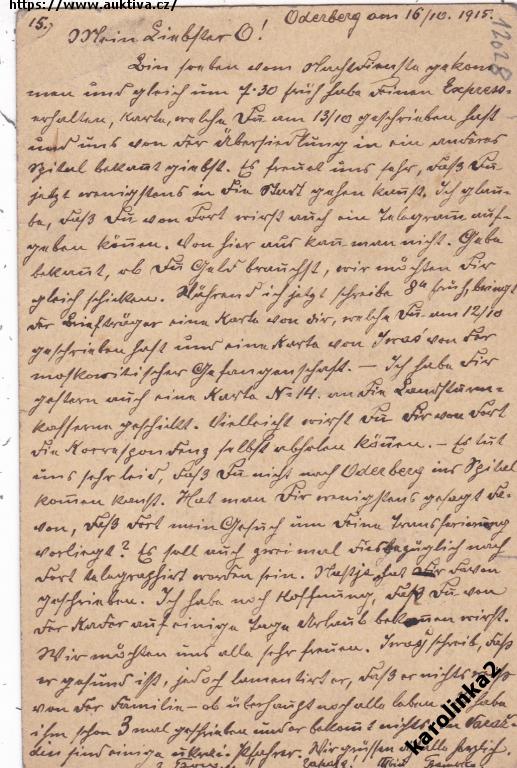 https://www.auktiva.cz/
15.) Oderberg am 16/10. 1915.
12028
Mein Liebster O!
Bin soeben vom Nachtdienste gekom-
men und gleich um 7·30 früh habe Deinen Express-
erhalten, Karte, welche Du am 13/10 geschrieben hast
und uns von der Übersiedlung in ein anderes
Spital bekannt giebst. Es freuet uns sehr, daß Du
jetzt wenigstens in die Stadt gehen kannst. Ich glau-
be, daß Du von dort wirst auch ein Telegram auf-
geben können. Von hier aus kann man nicht. Gebe
bekannt, ob Du Geld brauchst, wir möchten Dir
gleich schicken. Während ich jetzt schreibe 8h früh, bringt
der Briefträger eine Karte von dir, welche Du am 12/10
geschrieben hast und eine Karte von von der
moskowitischer Gefangenschaft. – Ich habe Dir
gestern auch eine Karte No 14. an die Landsturm-
kasserne geschickt. Vielleicht wirst Du Dir von dort
die Korrespondenz selbst abholen können. – Es tut
uns sehr leid, daß Du nicht nach Oderberg ins Spital
kommen kannst. Hat man Dir wenigstens gesagt da-
von, daß dort mein Gesuch um Deine Transferierung
vorliegt? Es soll auch zweimal diesbezüglich nach
dort telegraphiert worden sein. hat Dir davon
geschrieben. Ich habe noch Hoffnung, daß Du von
der Kader auf einige Tage Urlaub bekommen wirst.
Wir möchten uns alle sehr freuen. schreib, daß
er gesund ist, jedoch lamentiert er, daß er nichts weiß
von der Familie – ob überhaupt noch alle leben. habe
ihm schon 3 mal geschrieben und er bekommt nichts. In
sind einige Pfarrer. Wir grüssen dich alle herzlich.
karolinka2